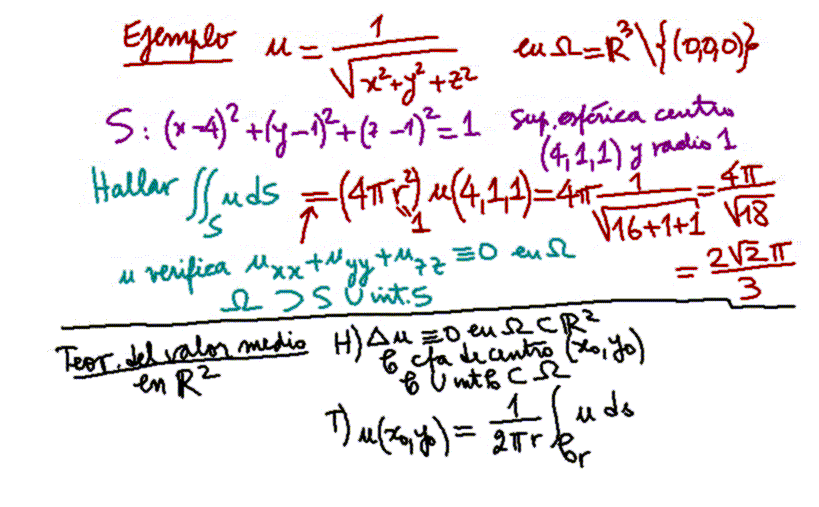 Ejemplo u = 1/√(x²+y²+z²) en Ω = ℝ³\{(0,0,0)}
S: (x-4)²+(y-1)²+(z-1)²=1 Sup. esférica centro (4,1,1) y radio 1
Hallar ∬_S u dS = (4πr²) u(4,1,1) = 4π 1/√(16+1+1) = 4π/√18
r² = 1
= 2√2π/3
u verifica u_xx+u_yy+u_zz ≡ 0 en Ω
Ω ⊃ S ∪ int. S
Teor. del valor medio en ℝ²
H) Δu ≡ 0 en Ω ⊂ ℝ²
𝒞 cfa de centro (x₀,y₀)
𝒞 ∪ int 𝒞 ⊂ Ω
T) u(x₀,y₀) = 1/(2πr) ∫_𝒞r u ds